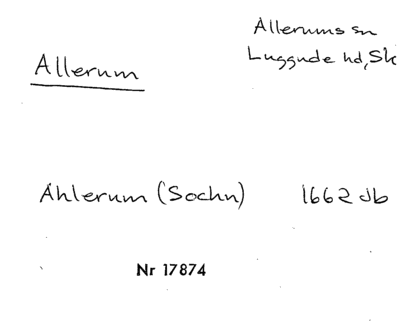 Allerums sn
Luggude hd, Sk
Allerum
Ahlerum (Sochn) 1662 db
Nr 17874